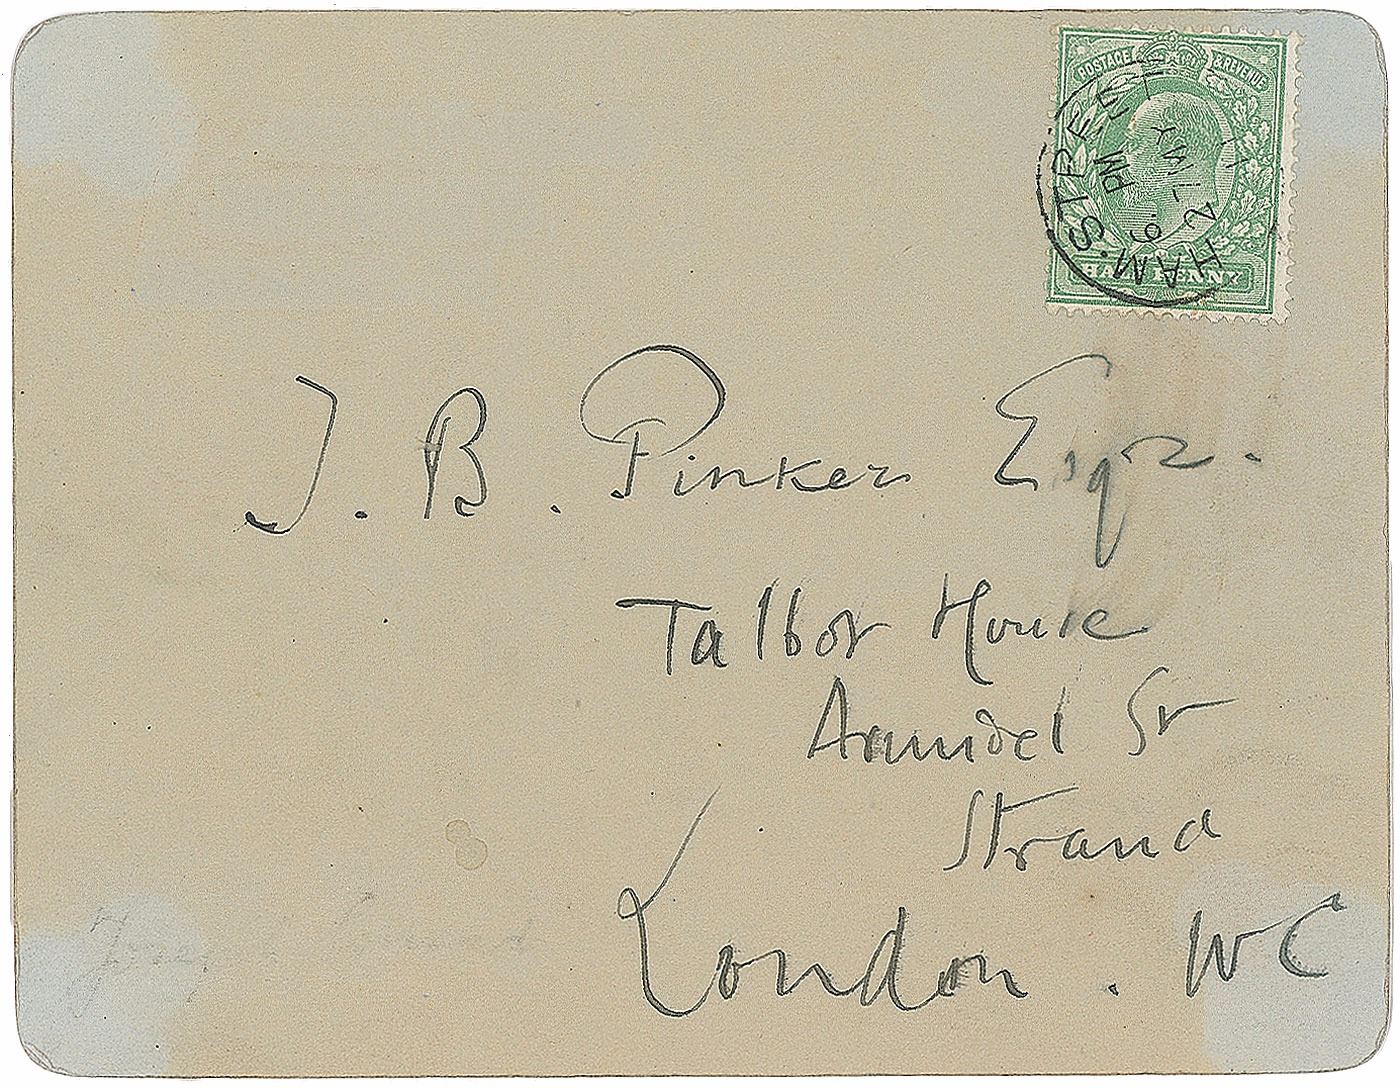 POSTAGE & REVENUE
HALF PENNY
HAM. STREET
6. PM
2 MY
11
J. B. Pinker Esqre.
Talbot House
Arundel St
Strand
London. WC